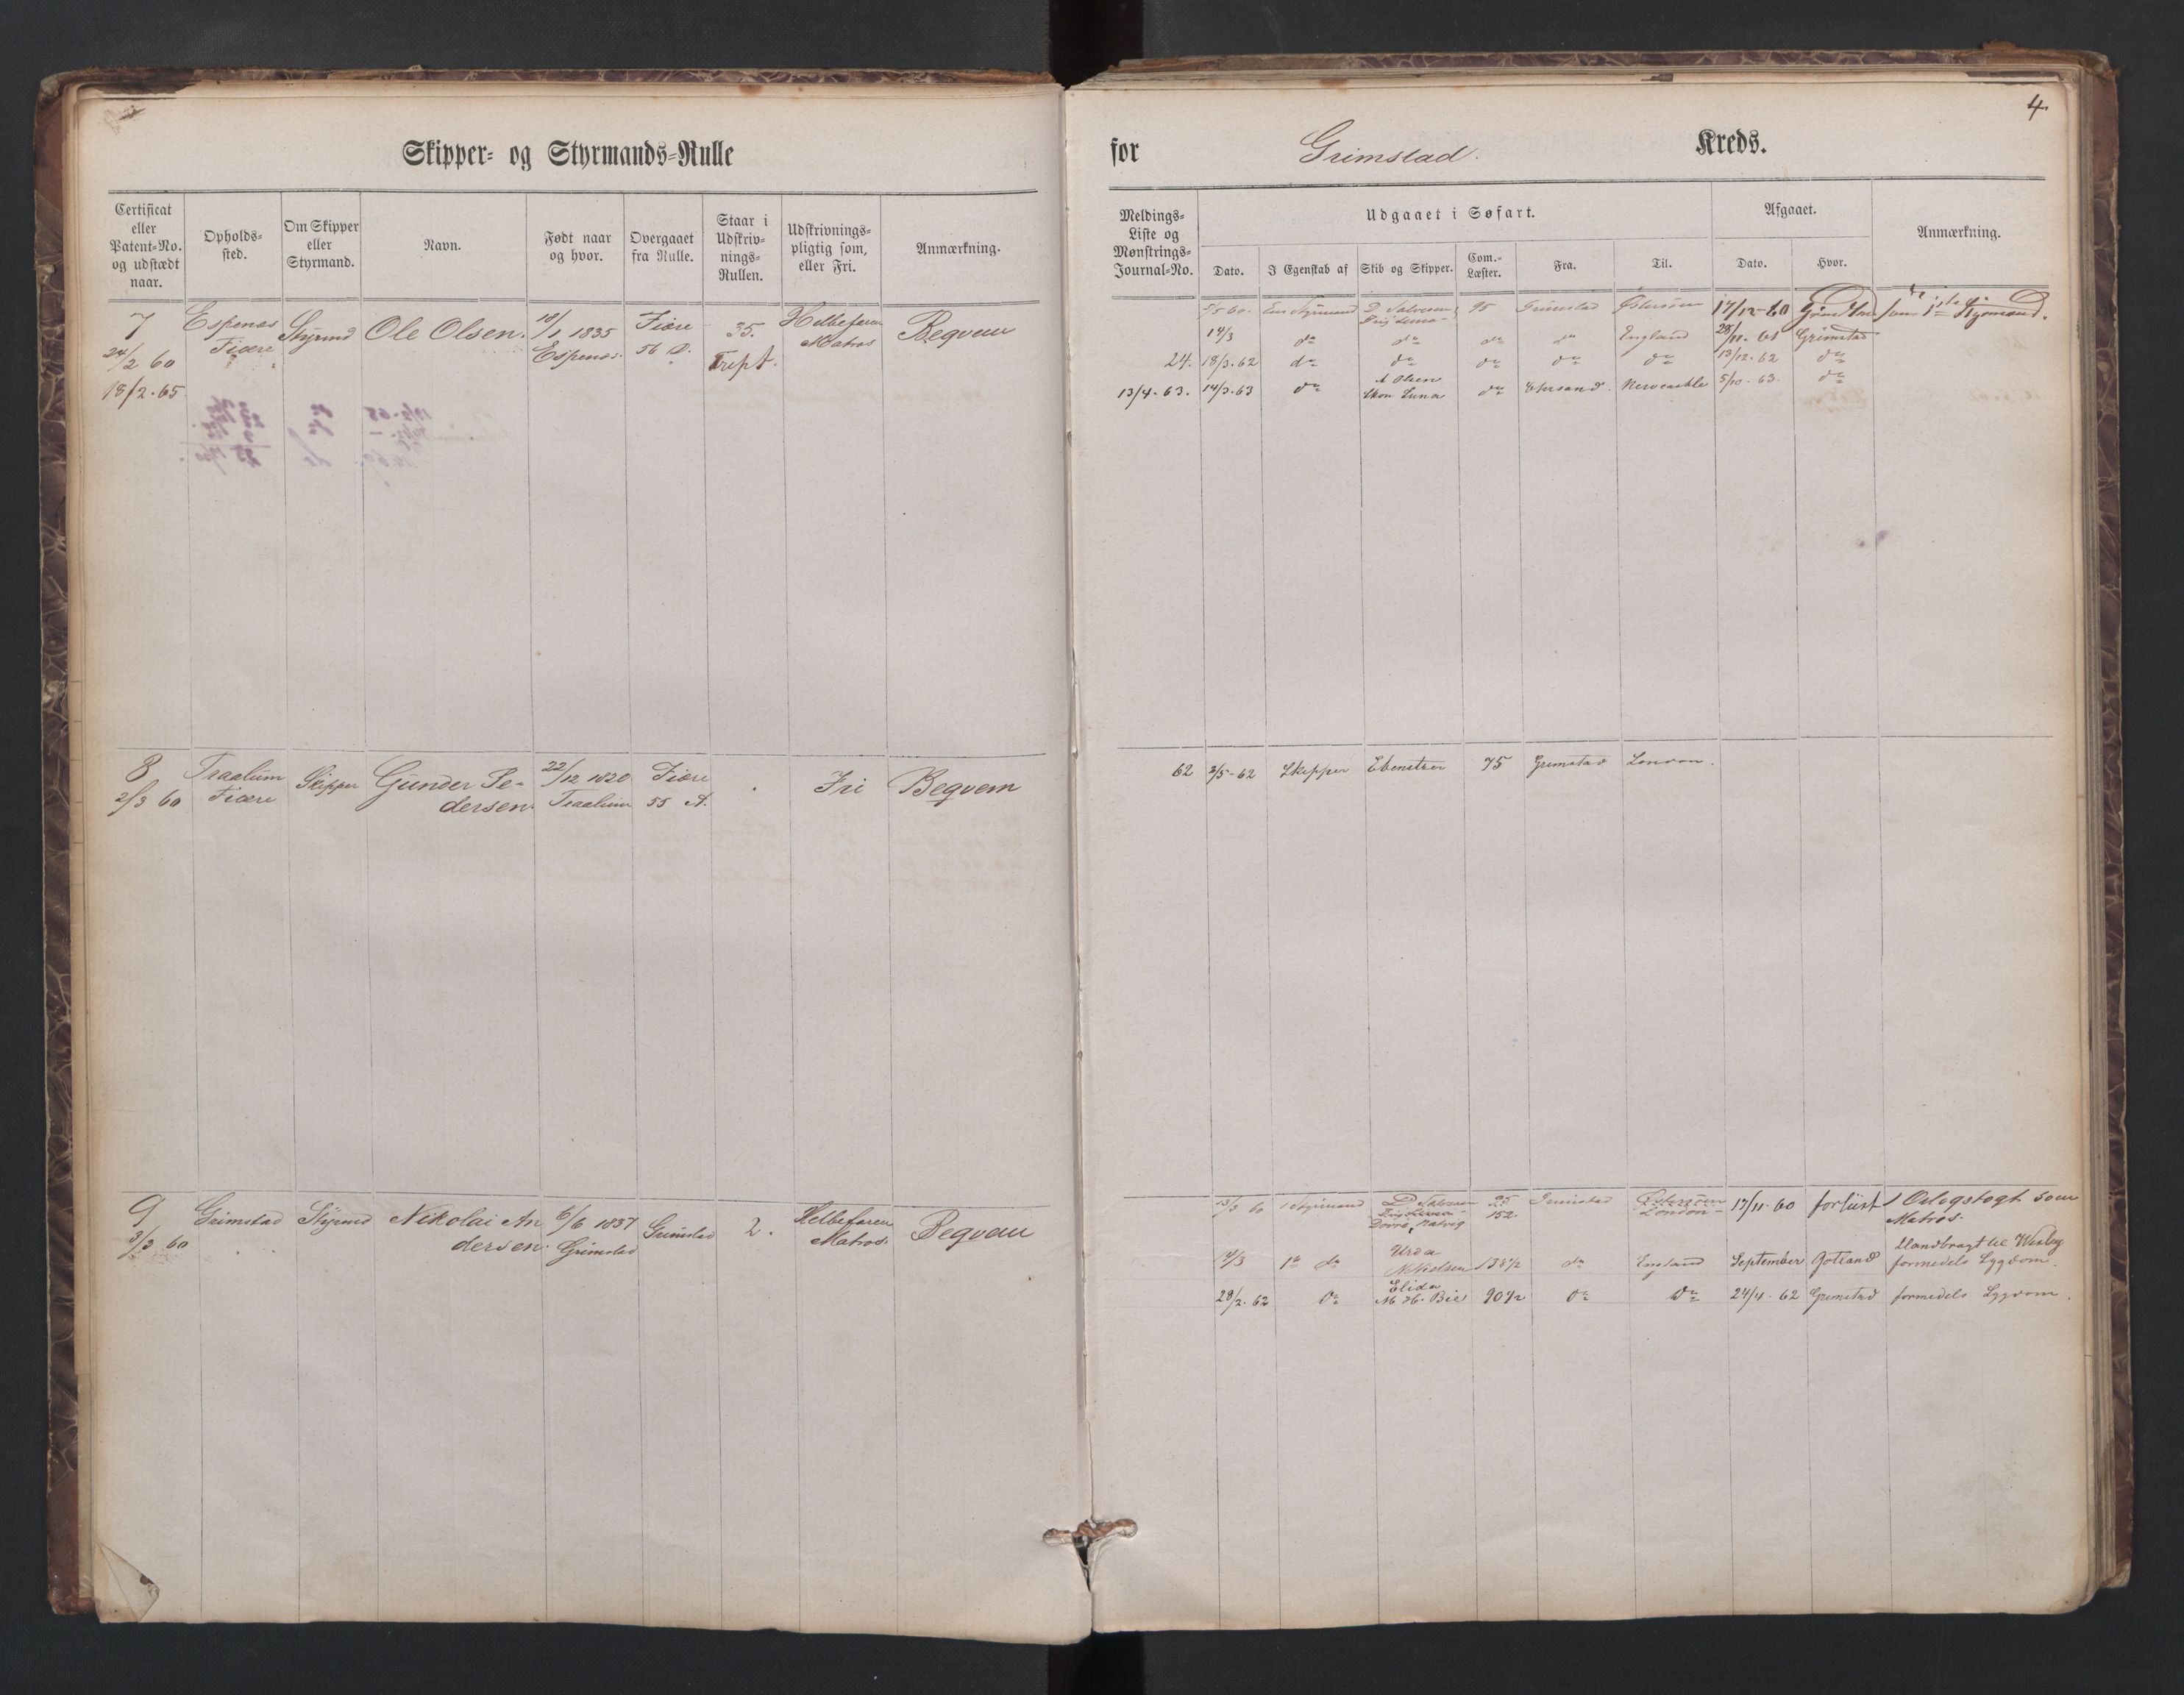 4
Skipper- og Styrmands-Rulle
for Grimstad. Kreds.
Certificat eller Patent-No. og udstædt naar.
Opholds-sted.
Om Skipper eller Styrmand.
Navn.
Født naar og hvor.
Overgaaet fra Rulle.
Staar i Udskriv-nings-Rullen.
Udskrivnings-pligtig som, eller Fri.
Anmærkning.
Meldings-Liste og Mønstrings-Journal-No.
Udgaaet i Søfart.
Dato.
I Egenskab af
Skib og Skipper.
Com.-Læster.
Fra.
Til.
Afgaaet.
Dato.
Hvor.
Anmærkning.
7 Espenes Styrmd Ole Olsen. 10/1 1835 Fiære 35. Helbefaren Begvem
24/2 60 Fiære Espenes. 56 D. Trept. Matros
18/2. 65
5/5 60. Styrmand Salvesen 95 Grimstad Østersøen 17/12-60 som 1ste Styrmand.
14/3 do do do do England 28/11. 61 Grimstad
24. 18/3. 62 do do do do do 13/12. 62 do
13/4. 63. 14/3. 63 do A Olsen do Newcastle 5/10. 63. do
8 Traalum Skipper Gunder Pe- 22/12 1820 Fiære Fri Begvem
2/3 60 Fiære dersen. Traalum 55 A.
62 3/5-62 Skipper Ebenetzer 75 Grimstad London.
9 Grimstad Styrmd Nikolai An 6/6 1837 Grimstad 2. Helbefaren Begvem
3/3 60 dersen. Grimstad Matros.
13/3 60 1 Styrmand Salvesen 95 Grimstad Østersøen 17/11. 60 forlist Orlogstogt som
152 London Matros.
14/3 1e do Urda 138½ do England September Gotland Ilandbragt til Wisby
N Nielsen formedels Sygdom.
28/2. 62 do Elida 90½ do do 24/4. 62 Grimstad formedels Sygdom.
M H. Bie